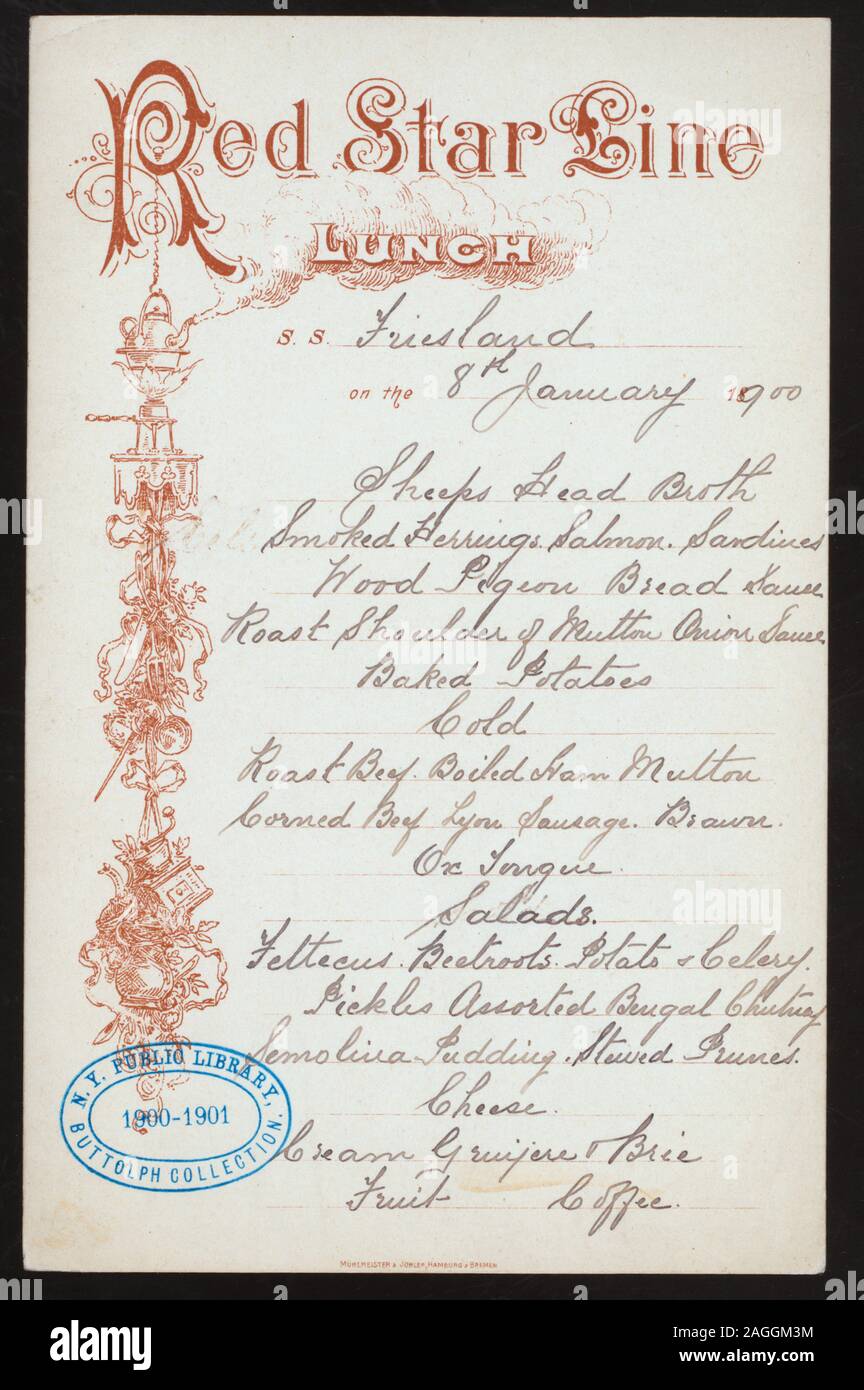 Red Star Line
LUNCH
S. S. Friesland
on the 8th January 18900
Sheeps Head Broth
Smoked Herrings. Salmon. Sardines
Wood Pigeon Bread Sauce
Roast Shoulder of Mutton Onion Sauce
Baked Potatoes
Cold
Roast Beef. Boiled Ham Mutton
Corned Beef Lyon Sausage. Brawn.
Ox Tongue.
Salads.
Lettecus. Beetroots. Potato & Celery.
Pickles Assorted Bengal Chutney
Semolina Pudding. Stewed Prunes.
Cheese.
Cream Gruijere & Brie
Fruit Coffee.
N.Y. PUBLIC LIBRARY,
1900-1901
BUTTOLPH COLLECTION.
MÜHLMEISTER & JOHLER, HAMBURG & BREMEN
alamy
Image ID: 2AGGM3M
www.alamy.com